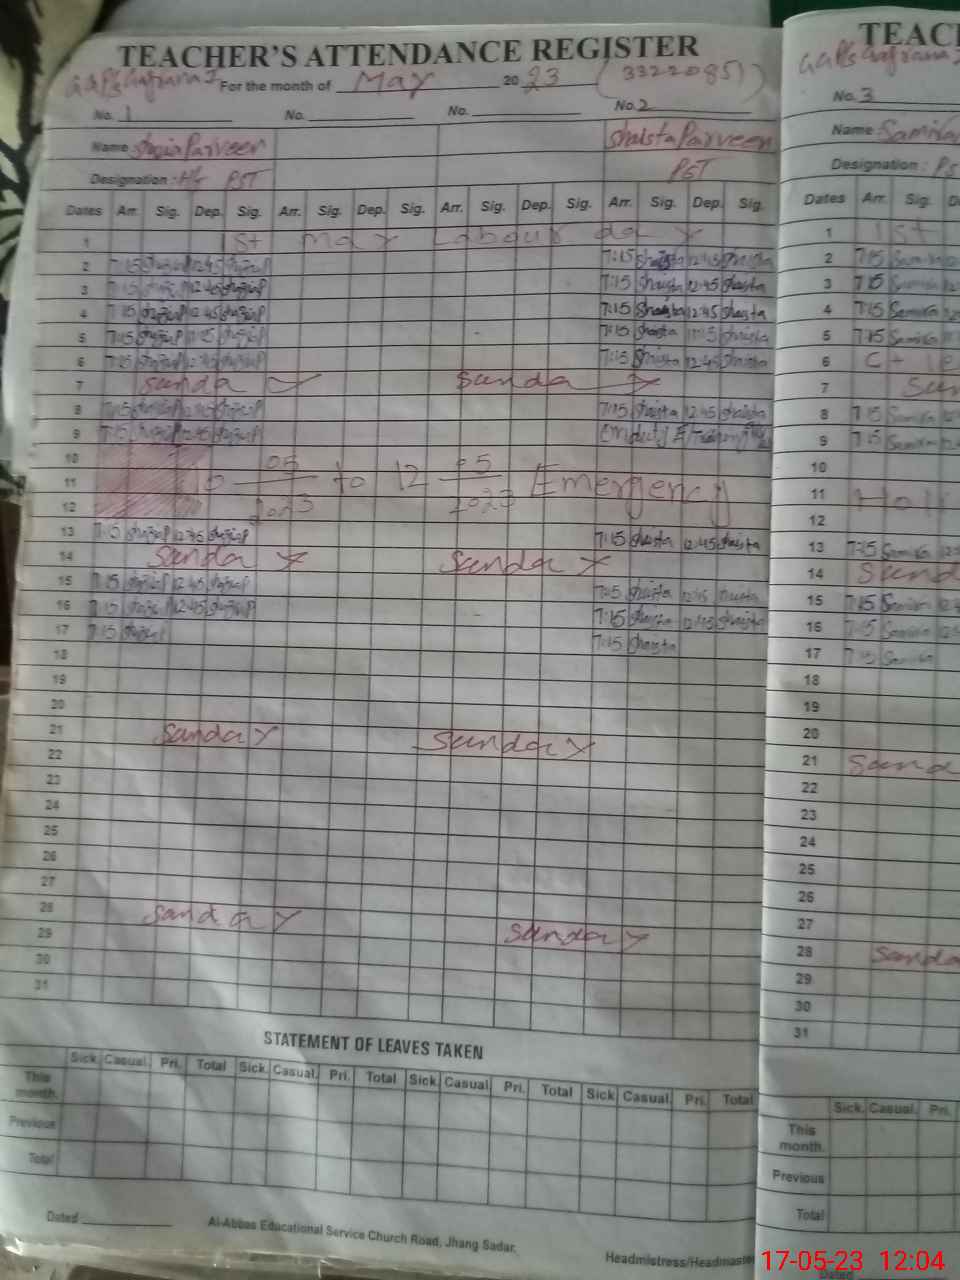 TEACHER'S ATTENDANCE REGISTER
For the month of May 2023 (3322085)
No. 1 No. No. No. 2
Name Parveen Shaista Parveen
Designation: PST PST
Dates Arr. Sig. Dep. Sig. Arr. Sig. Dep. Sig. Arr. Sig. Dep. Sig. Arr. Sig. Dep. Sig.
1 1st May Labour day
2 7:15 12:45 7:15 Shaista 12:45 Shaista
3 7:15 12:45 7:15 Shaista 12:45 Shaista
4 7:15 12:45 7:15 Shaista 12:45 Shaista
5 7:15 11:15 7:15 Shaista 11:15 Shaista
6 7:15 12:45 7:15 Shaista 12:45 Shaista
7 Sunday Sunday
8 7:15 12:45 7:15 Shaista 12:45 Shaista
9 7:15 12:45
10
11 10 05/2023 to 12 05/2023 Emergency
12
13 7:15 12:45 7:15 Shaista 12:45 Shaista
14 Sunday Sunday
15 7:15 12:45 7:15 Shaista 12:45 Shaista
16 7:15 12:45 7:15 Shaista 12:45 Shaista
17 7:15 7:15 Shaista
18
19
20
21 Sunday Sunday
22
23
24
25
26
27
28 Sunday Sunday
29
30
31
STATEMENT OF LEAVES TAKEN
Sick Casual Pri. Total Sick Casual Pri. Total Sick Casual Pri. Total Sick Casual Pri. Total
This month.
Previous
Total
Dated
Al-Abbas Educational Service Church Road, Jhang Sadar.
Headmistress/Headmaster
TEAC
No. 3
Name Samira
Designation: PS
Dates Arr. Sig. D
1 1st
2 7:15 Samira
3 7:15 Samira
4 7:15 Samira
5 7:15 Samira
6
7 Sun
8 7:15 Samira
9 7:15 Samira
10
11 Holi
12
13 7:15 Samira
14 Sund
15 7:15 Samira
16 7:15 Samira
17 7:15 Samira
18
19
20
21 Sunda
22
23
24
25
26
27
28 Sunda
29
30
31
Sick Casual Pri.
This month.
Previous
Total
Dated
17-05-23 12:04